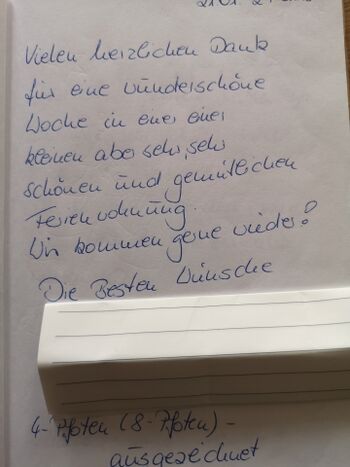 Vielen herzlichen Dank
für eine wunderschöne
Woche in einer einer
kleinen aber sehr, sehr
schönen und gemütlichen
Ferienwohnung.
Wir kommen gerne wieder!
Die Besten Wünsche
4-Pfoten (8-Pfoten) -
ausgezeichnet